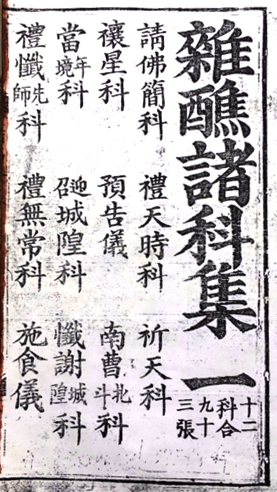 雜醮諸科集 一 十二科合九十三張
請佛簡科 禮天時科 祈天科
禳星科 預告儀 南曹北斗科
當年境科 城隍科 懺謝城隍科
禮懺先師科 禮無常科 施食儀